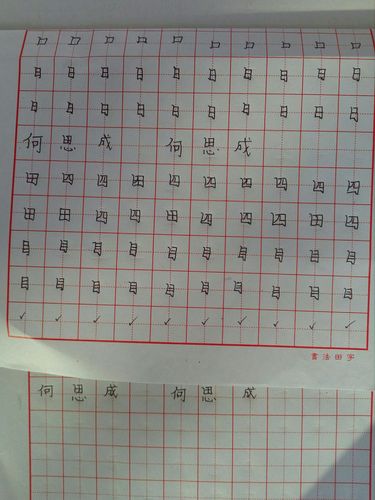 口 口 口 口 口 口 口 口 口 口
日 日 日 日 日 日 日 日 日 日
日 日 日 日 日 日 日 日 日 日
何 思 成 何 思 成
田 四 四 田 四 四 四 四 四 四
田 田 四 四 田 四 四 四 田 四
目 目 目 目 目 目 目 目 目 目
目 目 目 目 目 目 目 目 目 目
✓ ✓ ✓ ✓ ✓ ✓ ✓ ✓ ✓ ✓
書法田字
何 思 成 何 思 成